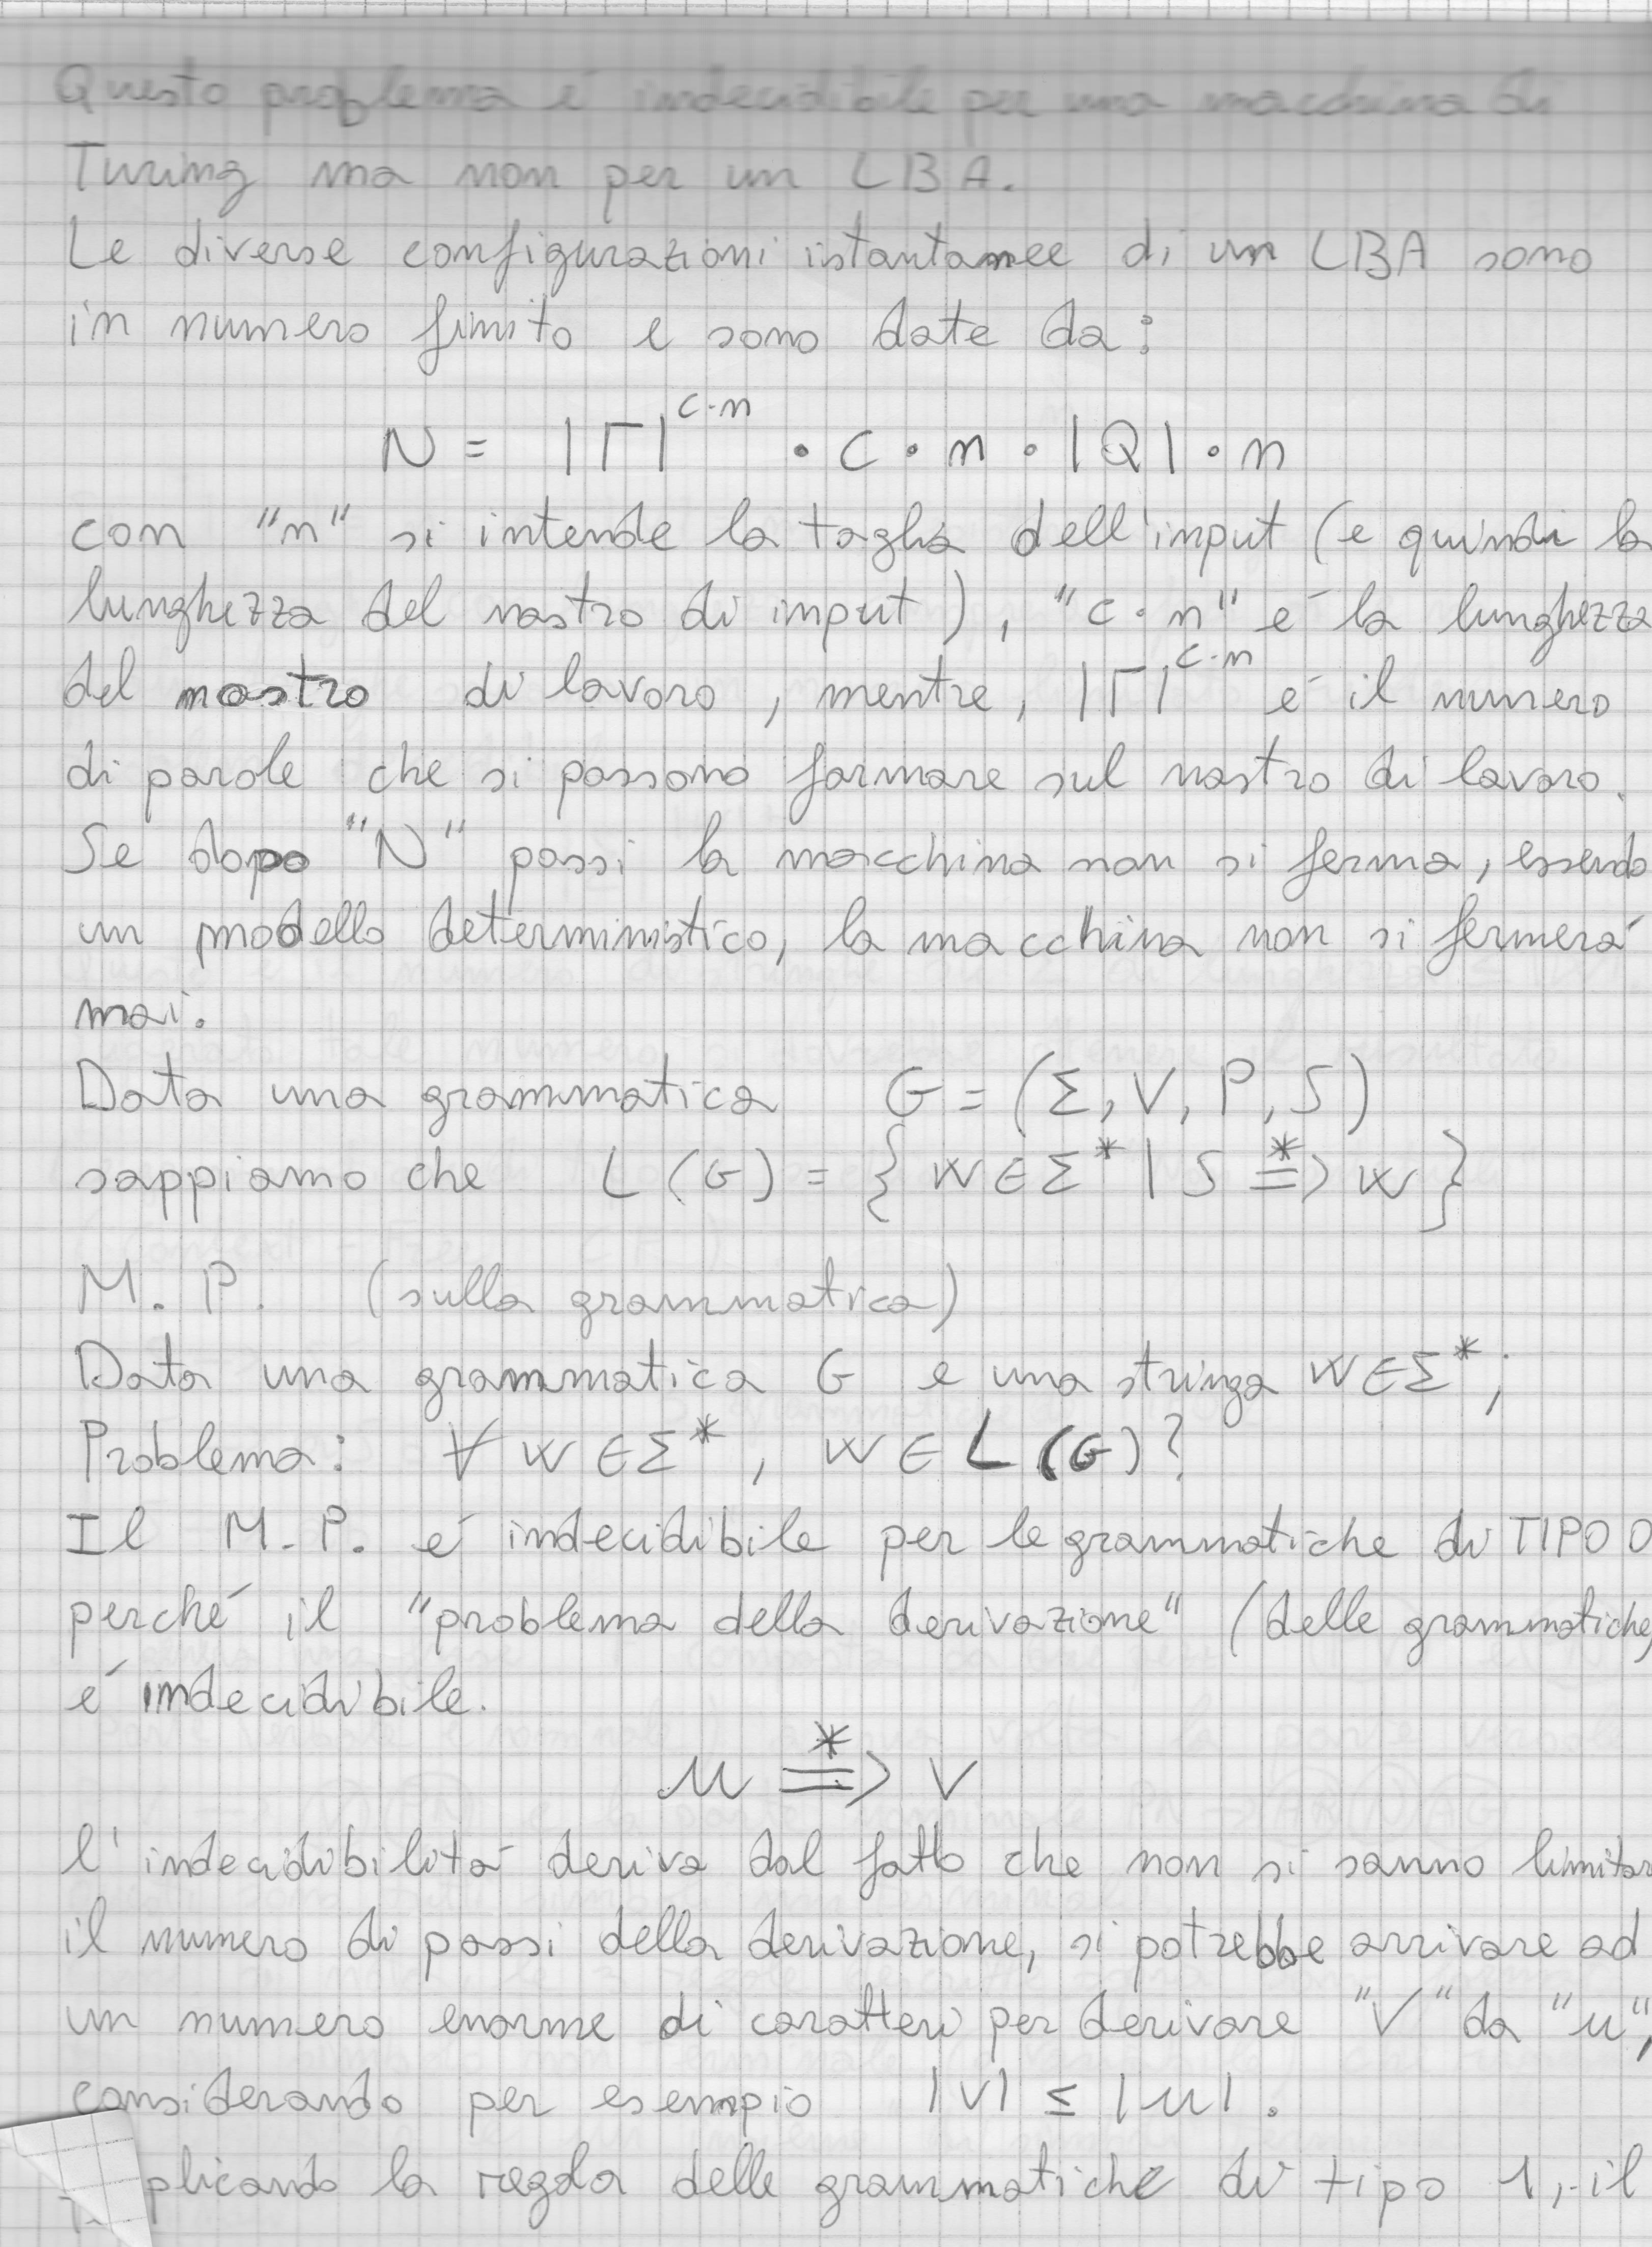 Questo problema é indecidibile per una macchina di
Turing ma non per un LBA.
Le diverse configurazioni istantanee di un LBA sono
in numero finito e sono date da:
N = |Γ|^{c·n} · c · n · |Q| · n
con "n" si intende la taglia dell'input (e quindi la
lunghezza del nastro di input), "c·n" é la lunghezza
del nastro di lavoro, mentre, |Γ|^{c·n} é il numero
di parole che si possono formare sul nastro di lavoro.
Se dopo "N" passi la macchina non si ferma, essendo
un modello deterministico, la macchina non si fermerá
mai.
Data una grammatica G = (Σ, V, P, S)
sappiamo che L(G) = { W ∈ Σ* | S ⇒* W }
M. P. (sulla grammatica)
Data una grammatica G e una stringa W ∈ Σ*;
Problema: ∀ W ∈ Σ*, W ∈ L(G)?
Il M.P. é indecidibile per le grammatiche di TIPO 0
perché il "problema della derivazione" (delle grammatiche)
é indecidibile.
u ⇒* v
l'indecidibilitá deriva dal fatto che non si sanno limitar
il numero di passi della derivazione, si potrebbe arrivare ad
un numero enorme di caratteri per derivare "V" da "u",
considerando per esempio |V| ≤ |u|.
plicando la regola delle grammatiche di tipo 1, il